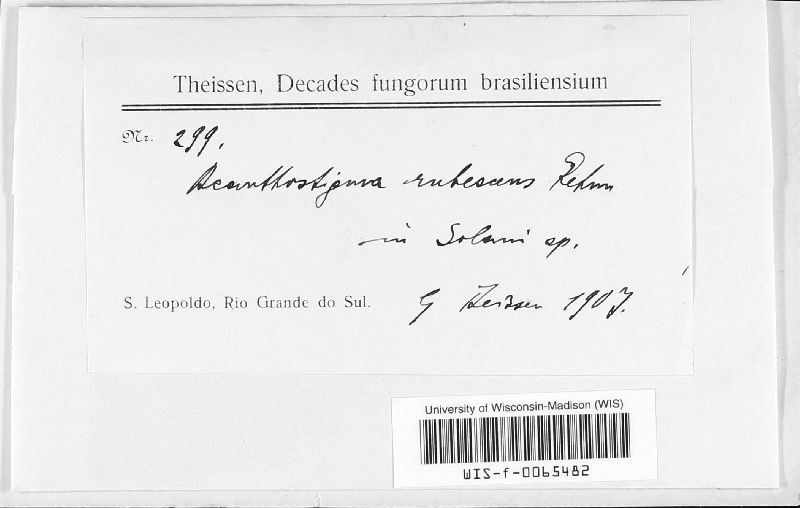 Theissen, Decades fungorum brasiliensium
Nr. 299.
Acanthostigma rubescens Rehm
in Solani sp.
S. Leopoldo, Rio Grande do Sul. G Theissen 1907.
University of Wisconsin-Madison (WIS)
WIS-f-0065482